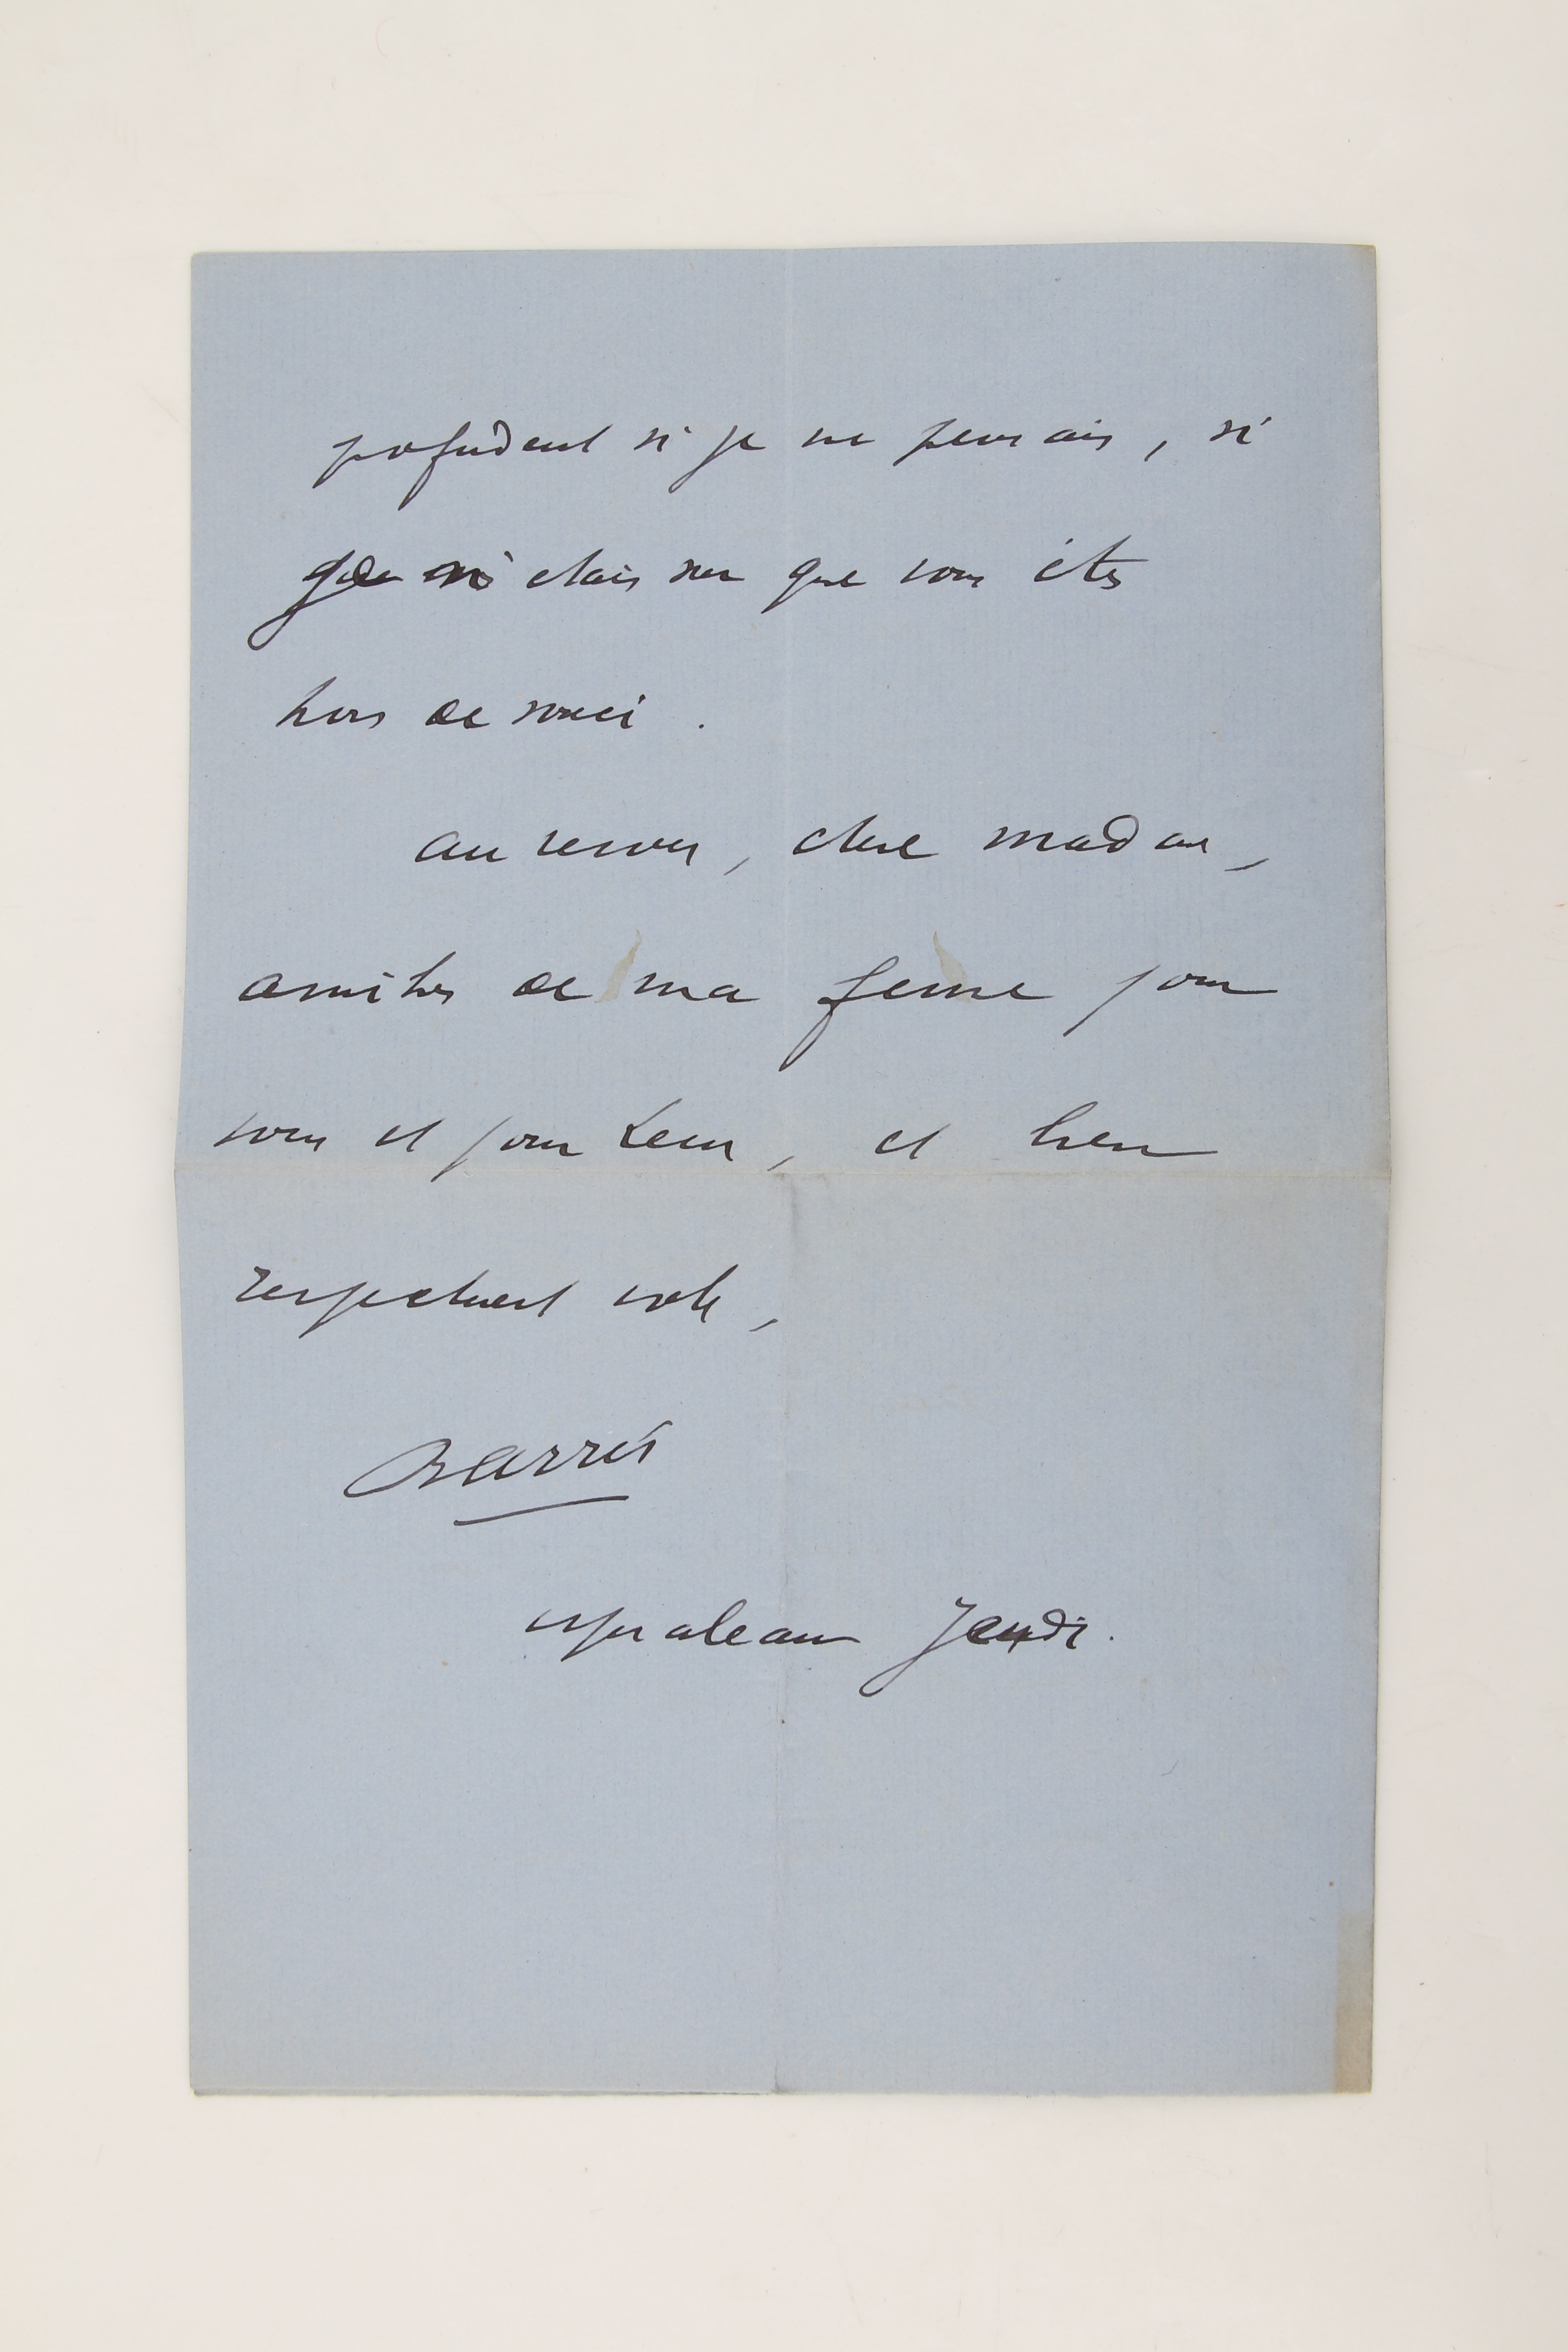 profondement si je ne pensais, si
je n'étais sur que vous êtes
hors de souci.
au revoir, chere madame,
amities de ma femme pour
vous et pour Leon, et bien
respectueusement votre,
Barrès
Jeudi.